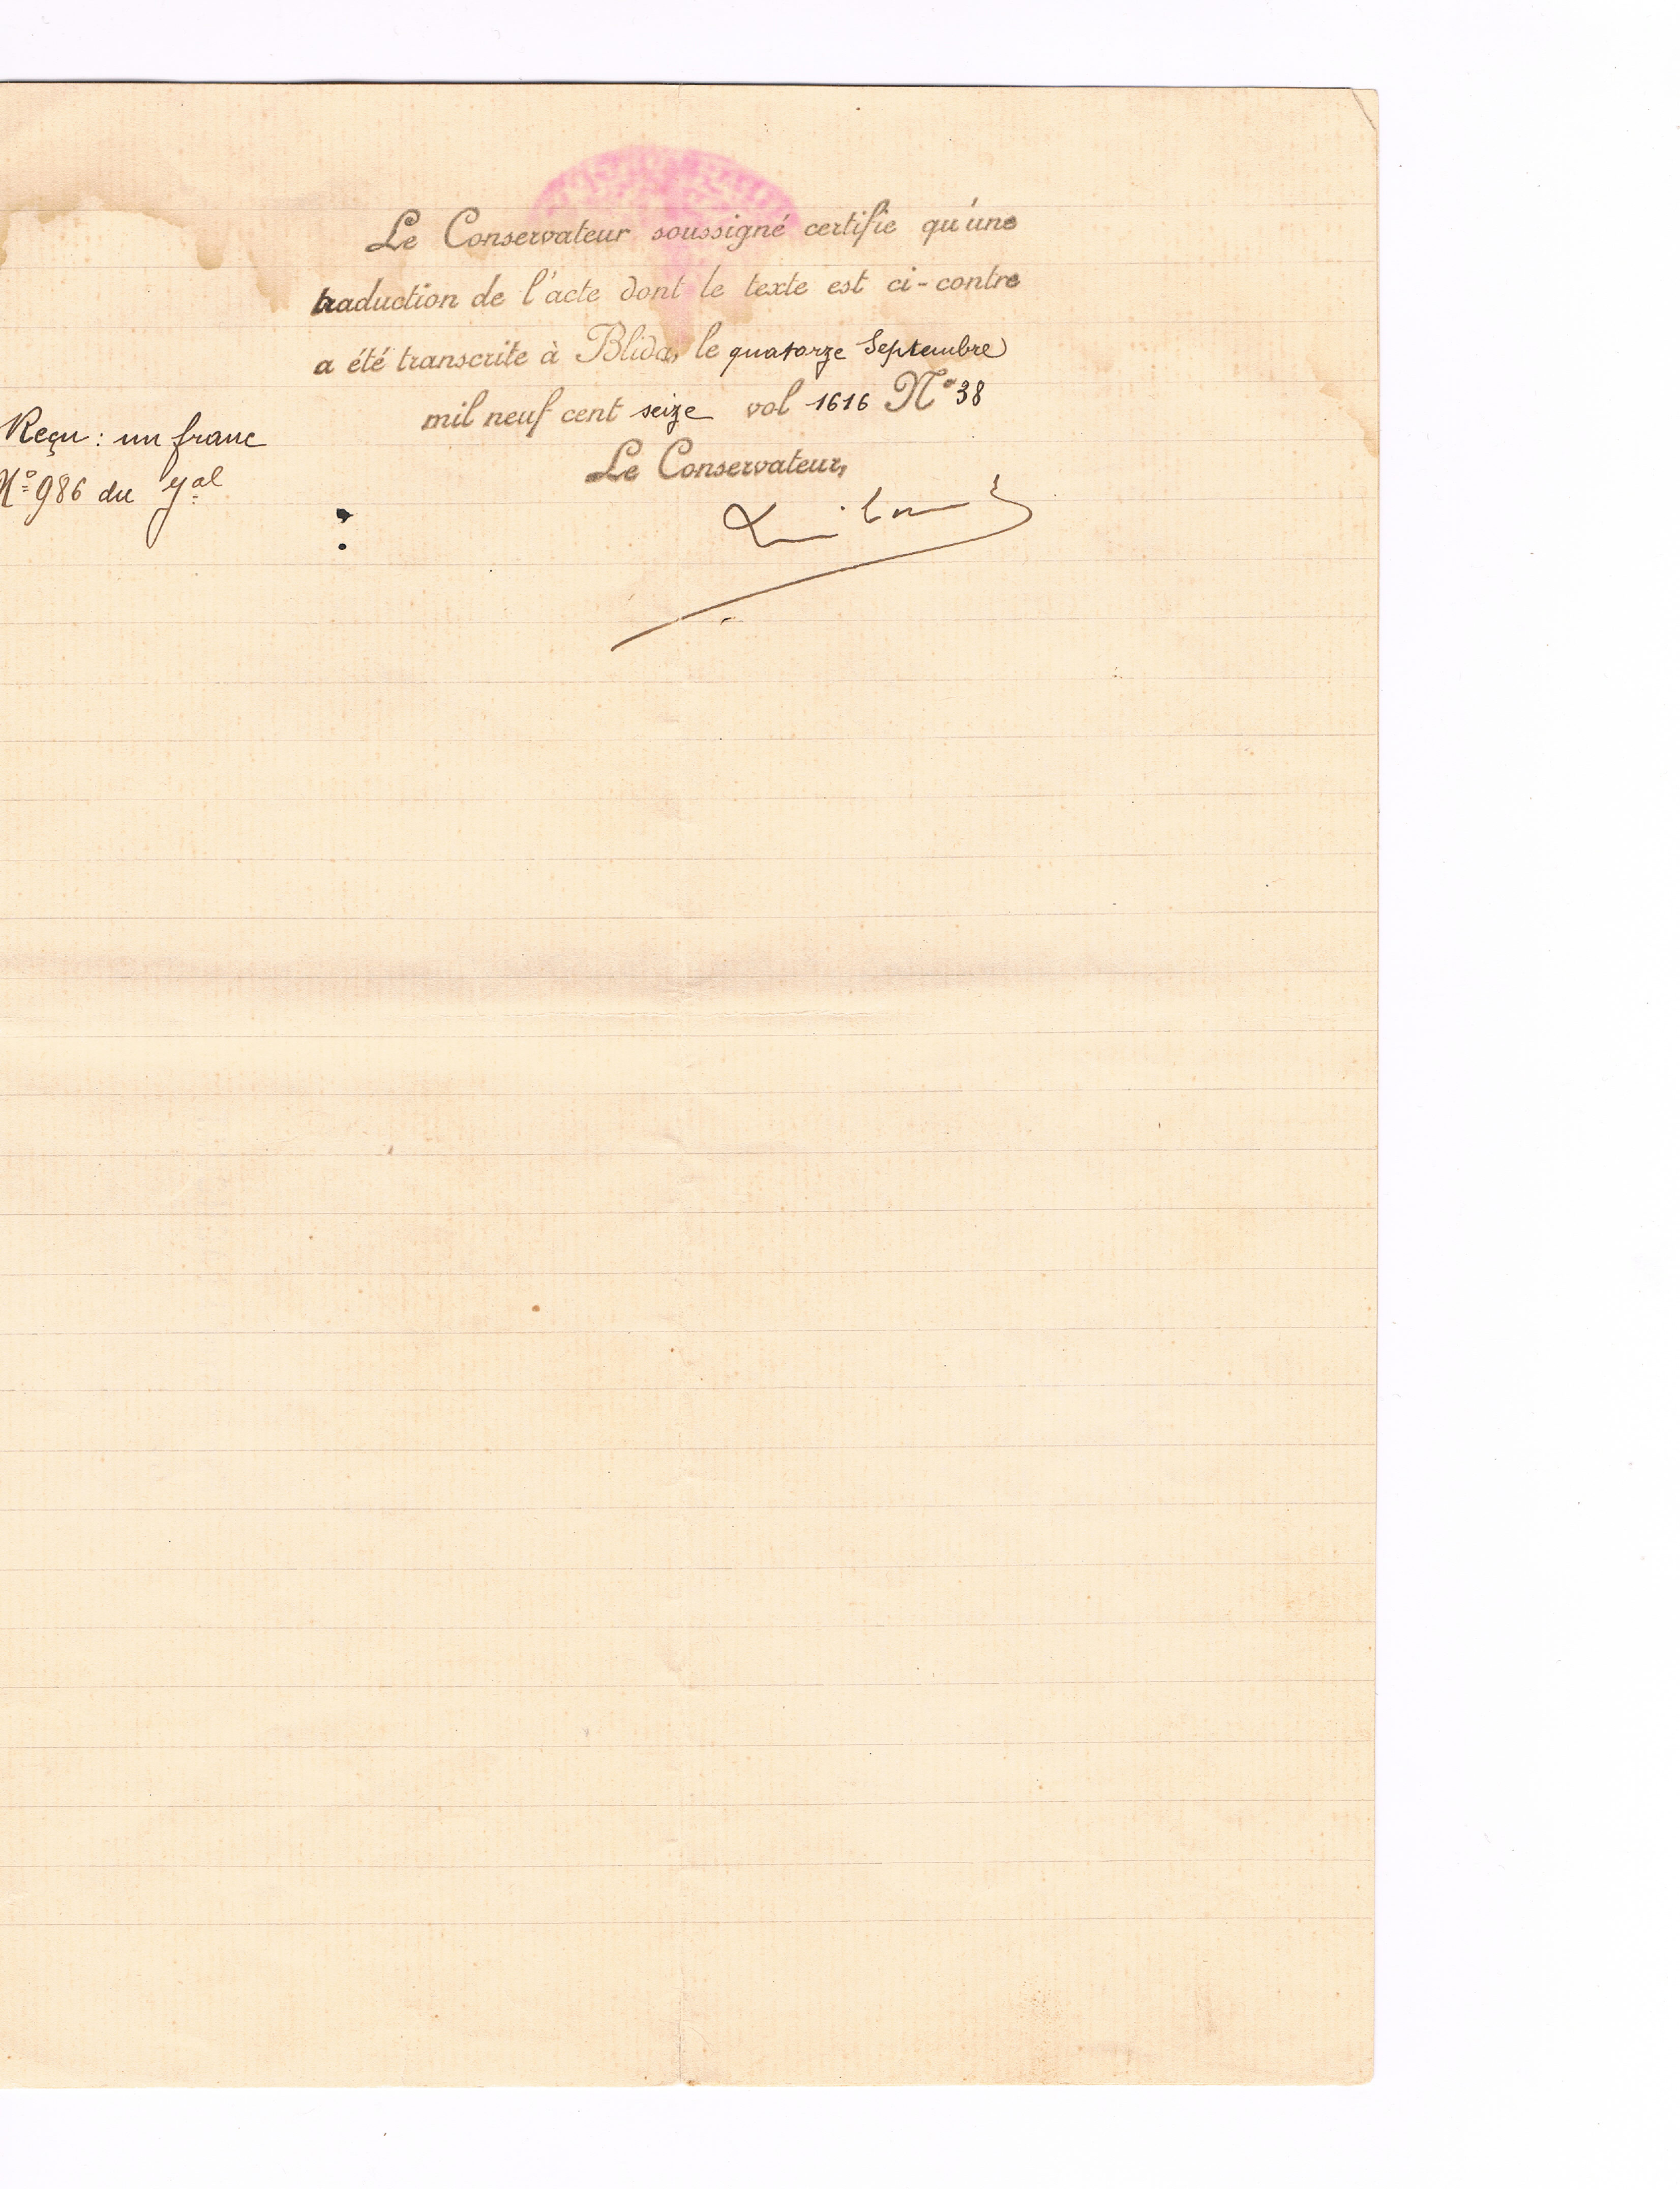 Le Conservateur soussigné certifie qu'une
traduction de l'acte dont le texte est ci-contre
a été transcrite à Blida, le quatorze Septembre
mil neuf cent seize vol 1616 N° 38
Le Conservateur,
Reçu : un franc
N° 986 du